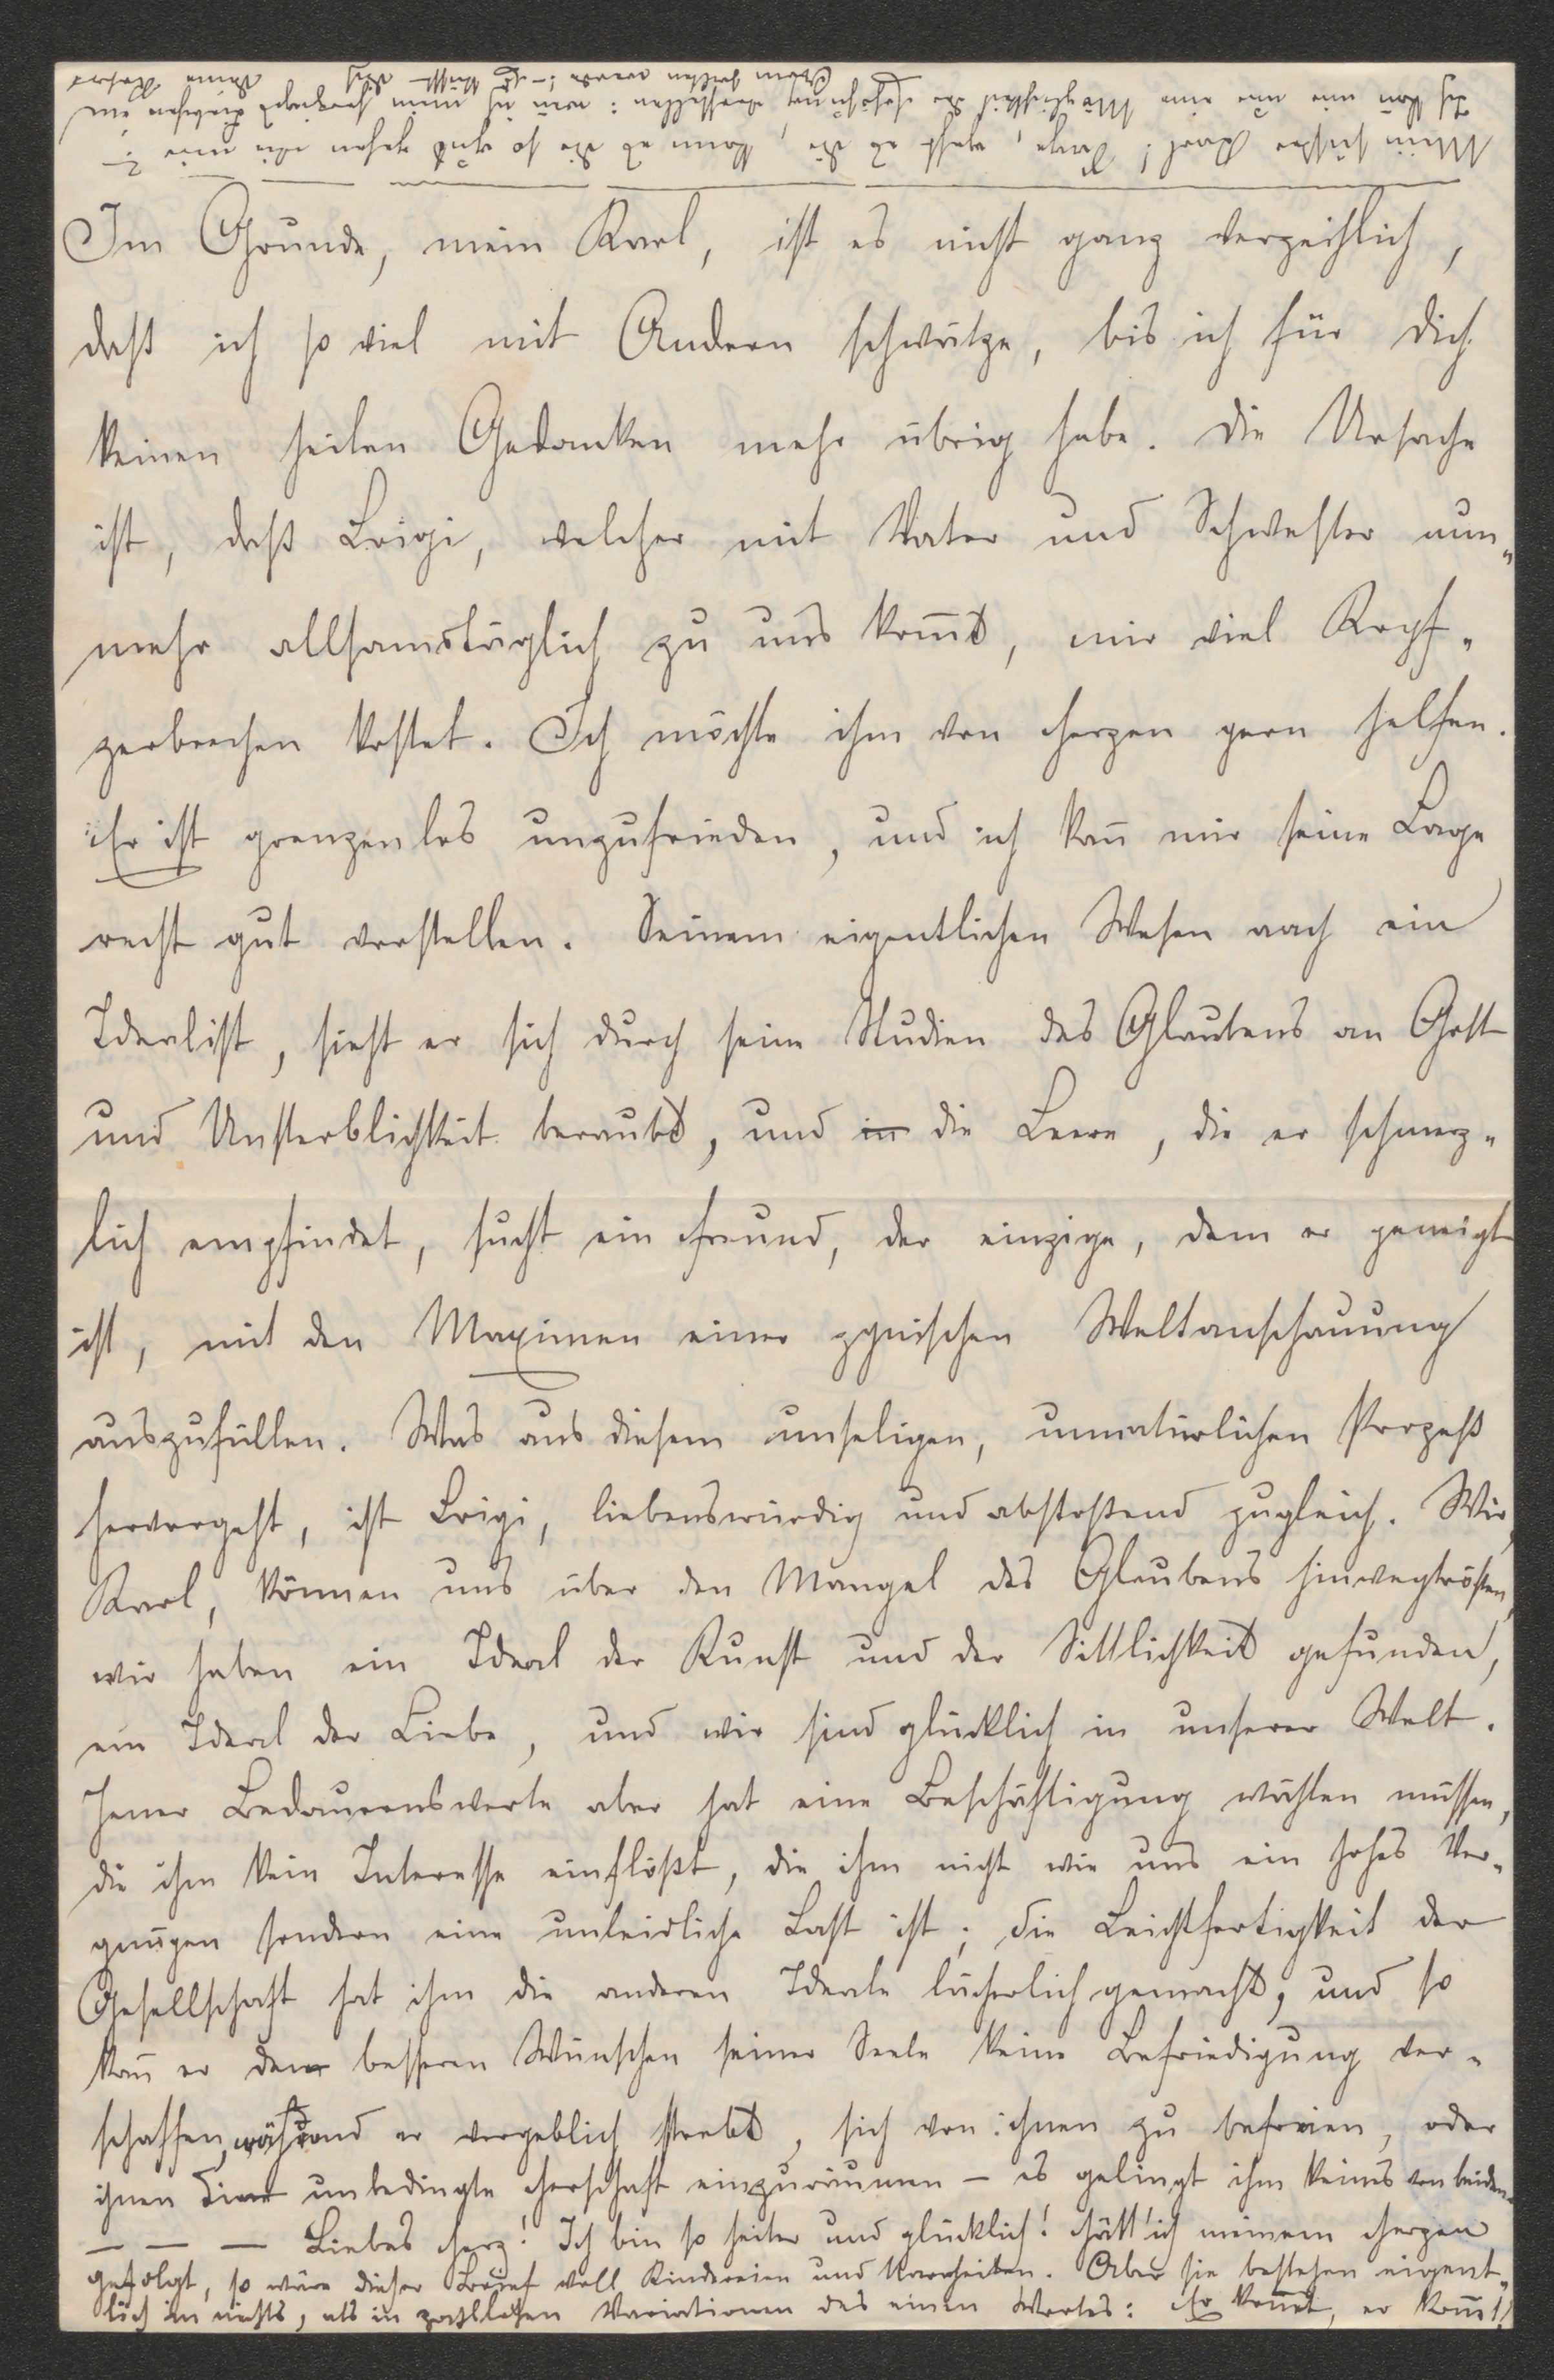 Mein süßer Karl! Sage, geht es Dir, kann es Dir so gut gehen wie mir?
Ich kañ mir nur eine Möglichkeit der Erhöhung vorstellen: weñ ich meinen herzigen Liebsten im
Arm halten werde. – Es küßt Dich Deine
Im Grunde, mein Karl, ist es nicht ganz verzeihlich,
daß ich so viel mit Andern schwätze, bis ich für Dich
keinen heilen Gedanken mehr übrig habe. Die Ursache
ist, daß Luigi, welcher mit Vater und Schwester nun„
mehr allsamstäglich zu uns kom̄t, mir viel Kopf„
zerbrechen kostet. Ich möchte ihm von Herzen gern helfen.
Er ist grenzenlos unzufrieden, und ich kañ mir seine Lage
recht gut vorstellen. Seinem eigentlichen Wesen nach ein
Idealist, sieht er sich durch seine Studien des Glaubens an Gott
und Unsterblichkeit beraubt, und in die Leere, die er schmerz„
lich empfindet, sucht ein Freund, der einzige, dem er geneigt
ist, mit den Maximen einer zynischen Weltanschauung
auszufüllen. Was aus diesem unseligen, unnatürlichen Prozeß
hervorgeht, ist Luigi, liebenswürdig und abstoßend zugleich. Wir,
Karl, können uns über den Mangel des Glaubens hinwegtrösten,
wir haben ein Ideal der Kunst und der Sittlichkeit gefunden,
ein Ideal der Liebe, und wir sind glücklich in unserer Welt.
Jener Bedauernswerte aber hat eine Beschäftigung wählen müssen,
die ihm kein Interesse einflößt, die ihm nicht wie uns ein hohes Ver„
gnügen sondern eine unleidliche Last ist; die Leichtfertigkeit der
Gesellschaft hat ihm die anderen Ideale lächerlich gemacht, und so
kañ er den besseren Wünschen seiner Seele keine Befriedigung ver„
schaffen, während er vergeblich strebt, sich von ihnen zu befreien, oder
ihnen unbedingte Herschaft einzuräumen – es gelingt ihm keines von beiden.
— — — Liebes Herz! Ich bin so heiter und glücklich! Hätt' ich meinem Herzen
gefolgt, so wäre dieser Brief voll Kindereien und Narrheiten. Aber sie bestehen eigent„
lich in nichts, als in zahllosen Variationen des einen Wortes: Er kom̄t, er kom̄t!